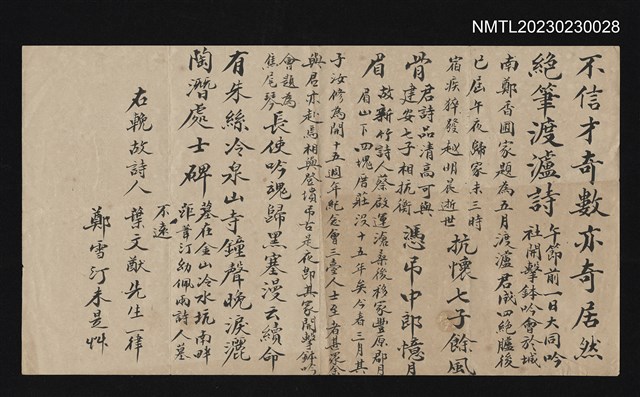 NMTL20230230028
不信才奇數亦奇居然
絕筆渡瀘詩 午節前一日大同吟
社開擊鉢吟會於城
南鄭香圃家題為五月渡瀘君成四絕臚後
已屆午夜歸家未三時
宿疾猝發越明晨逝世 抗懷七子餘風
骨 君詩品清高可與
建安七子相抗衡 憑吊中郎憶月
眉 故新竹詩人蔡啟運滄桑後移家豐原郡月
眉山下四塊厝庄沒十五年矣今春三月其
子汝修為開十五週年紀念會三臺人士至者甚眾
與君亦赴焉相與登墳吊古是夜即其家開擊鉢吟
會題為
焦尾琴 長使吟魂歸黑塞漫云續命
有朱絲冷泉山寺鐘聲晚淚灑
陶潛處士碑 墓在金山冷水坑南畔
距茸汀幼佩兩詩人墓
不遠
右輓故詩人 葉文猷先生一律
鄭雪汀未是艸